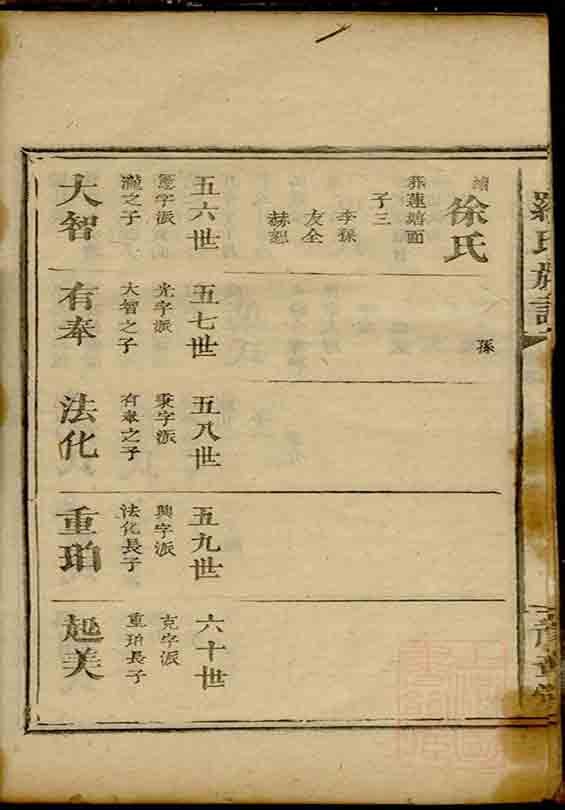 羅氏族譜
續
徐氏
葬蓮塘面
子三
李孫
友全
赫
孫
五六世
字派
之子
大智
五七世
光字派
大智之子
有奉
五八世
秉字派
有奉之子
法化
五九世
興字派
法化長子
重珀
六十世
克字派
重珀長子
起美